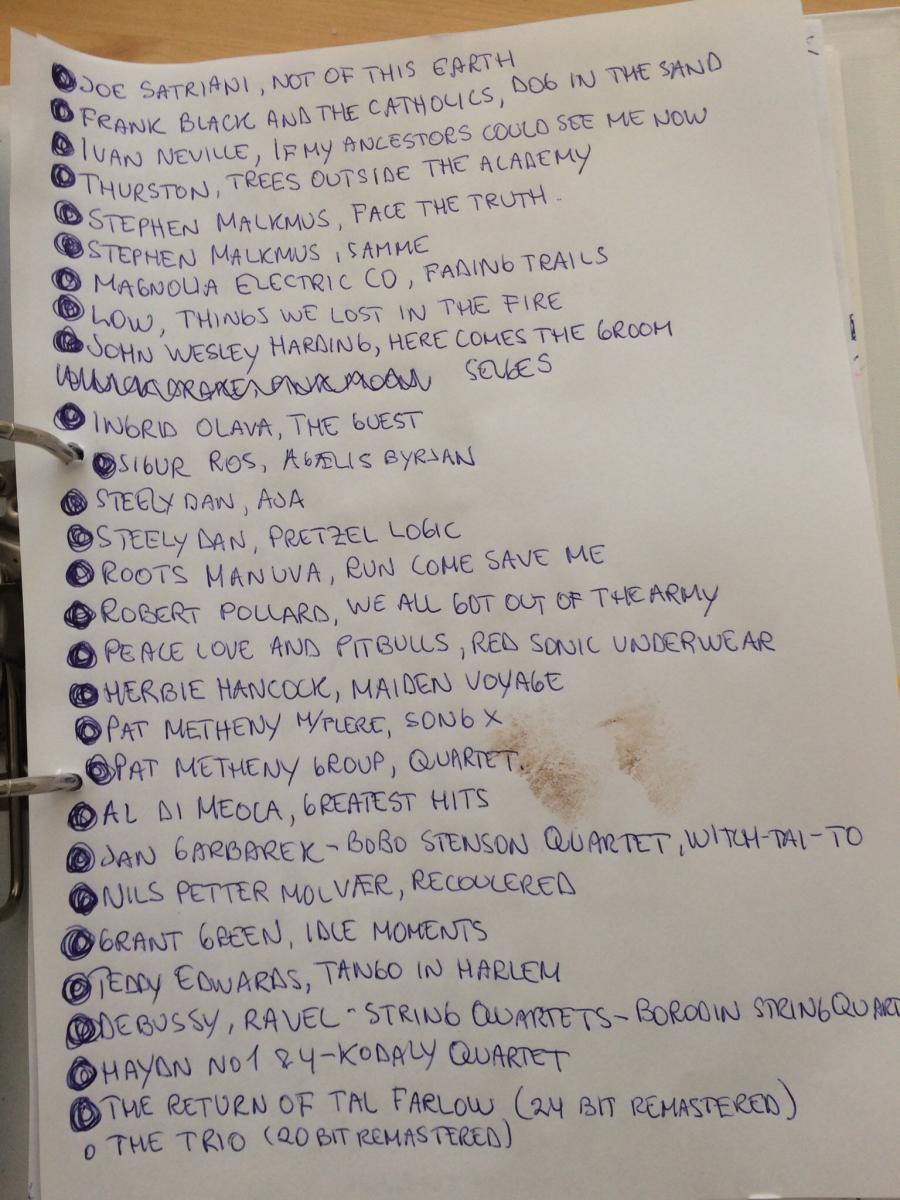 JOE SATRIANI, NOT OF THIS EARTH
FRANK BLACK AND THE CATHOLICS, DOG IN THE SAND
IVAN NEVILLE, IF MY ANCESTORS COULD SEE ME NOW
THURSTON, TREES OUTSIDE THE ACADEMY
STEPHEN MALKMUS, FACE THE TRUTH.
STEPHEN MALKMUS, SAMME
MAGNOLIA ELECTRIC CO, FADING TRAILS
LOW, THINGS WE LOST IN THE FIRE
JOHN WESLEY HARDING, HERE COMES THE GROOM
SELGES
INGRID OLAVA, THE GUEST
SIGUR ROS, AGÆLIS BYRJAN
STEELY DAN, AJA
STEELY DAN, PRETZEL LOGIC
ROOTS MANUVA, RUN COME SAVE ME
ROBERT POLLARD, WE ALL GOT OUT OF THE ARMY
PEACE LOVE AND PITBULLS, RED SONIC UNDERWEAR
HERBIE HANCOCK, MAIDEN VOYAGE
PAT METHENY M/FLERE, SONG X
PAT METHENY GROUP, QUARTET.
AL DI MEOLA, GREATEST HITS
JAN GARBAREK - BOBO STENSON QUARTET, WITCH-TAI-TO
NILS PETTER MOLVÆR, RECOULERED
GRANT GREEN, IDLE MOMENTS
TEDDY EDWARDS, TANGO IN HARLEM
DEBUSSY, RAVEL - STRING QUARTETS - BORODIN STRING QUART
HAYDN NO1 & 4 - KODALY QUARTET
THE RETURN OF TAL FARLOW (24 BIT REMASTERED)
THE TRIO (20 BIT REMASTERED)